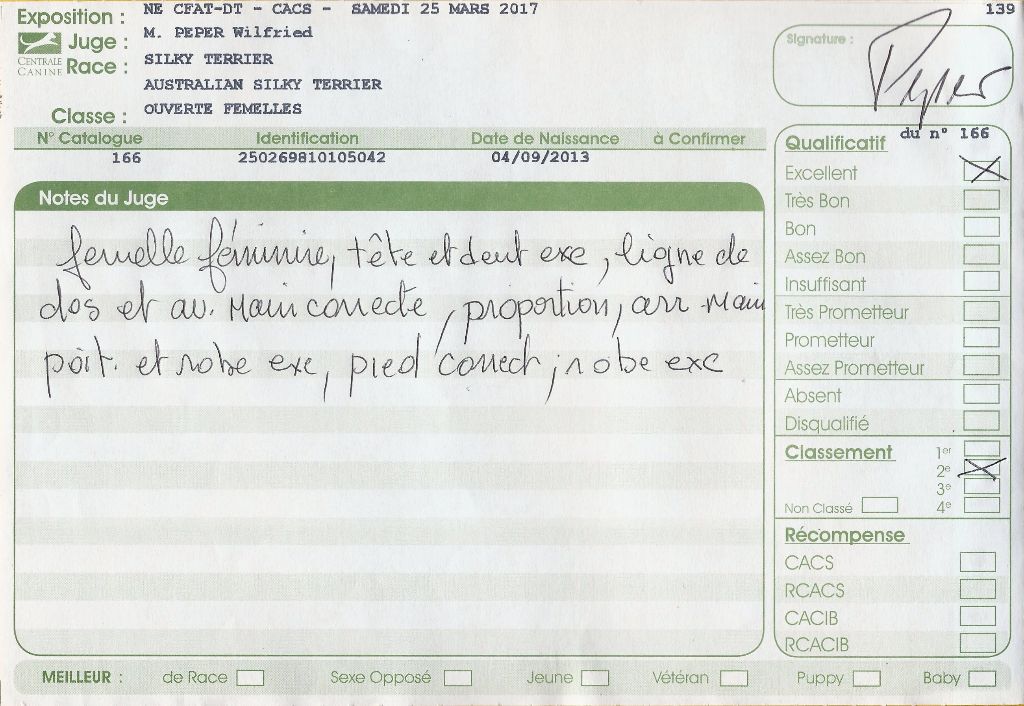 Exposition : NE CFAT-DT - CACS - SAMEDI 25 MARS 2017
139
CENTRALE CANINE
Juge : M. PEPER Wilfried
Race : SILKY TERRIER
AUSTRALIAN SILKY TERRIER
Classe : OUVERTE FEMELLES
Signature :
Peper
N° Catalogue Identification Date de Naissance à Confirmer
166 250269810105042 04/09/2013
Notes du Juge
femelle féminine, tête et dent exe, ligne de
dos et av. main correcte, proportion, arr main
poit. et robe exe, pied correct, robe exc
Qualificatif du n° 166
Excellent
Très Bon
Bon
Assez Bon
Insuffisant
Très Prometteur
Prometteur
Assez Prometteur
Absent
Disqualifié
Classement 1er
2e
3e
Non Classé 4e
Récompense
CACS
RCACS
CACIB
RCACIB
MEILLEUR : de Race Sexe Opposé Jeune Vétéran Puppy Baby